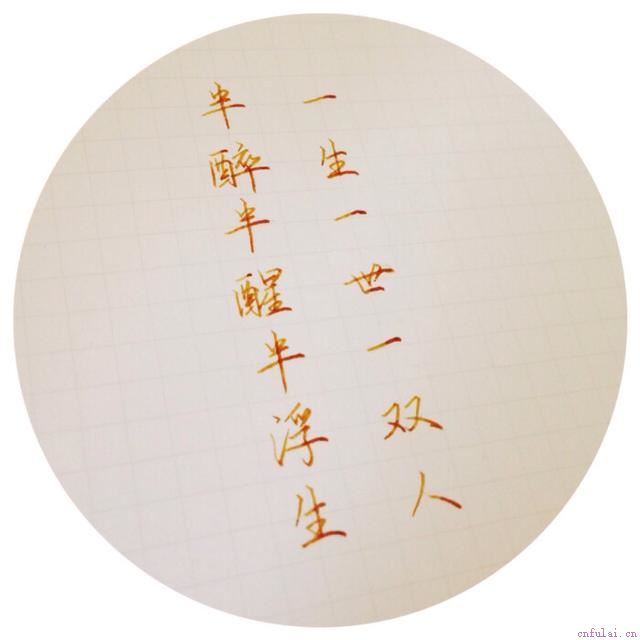 一生一世一双人
半醉半醒半浮生
cnfulai.cn